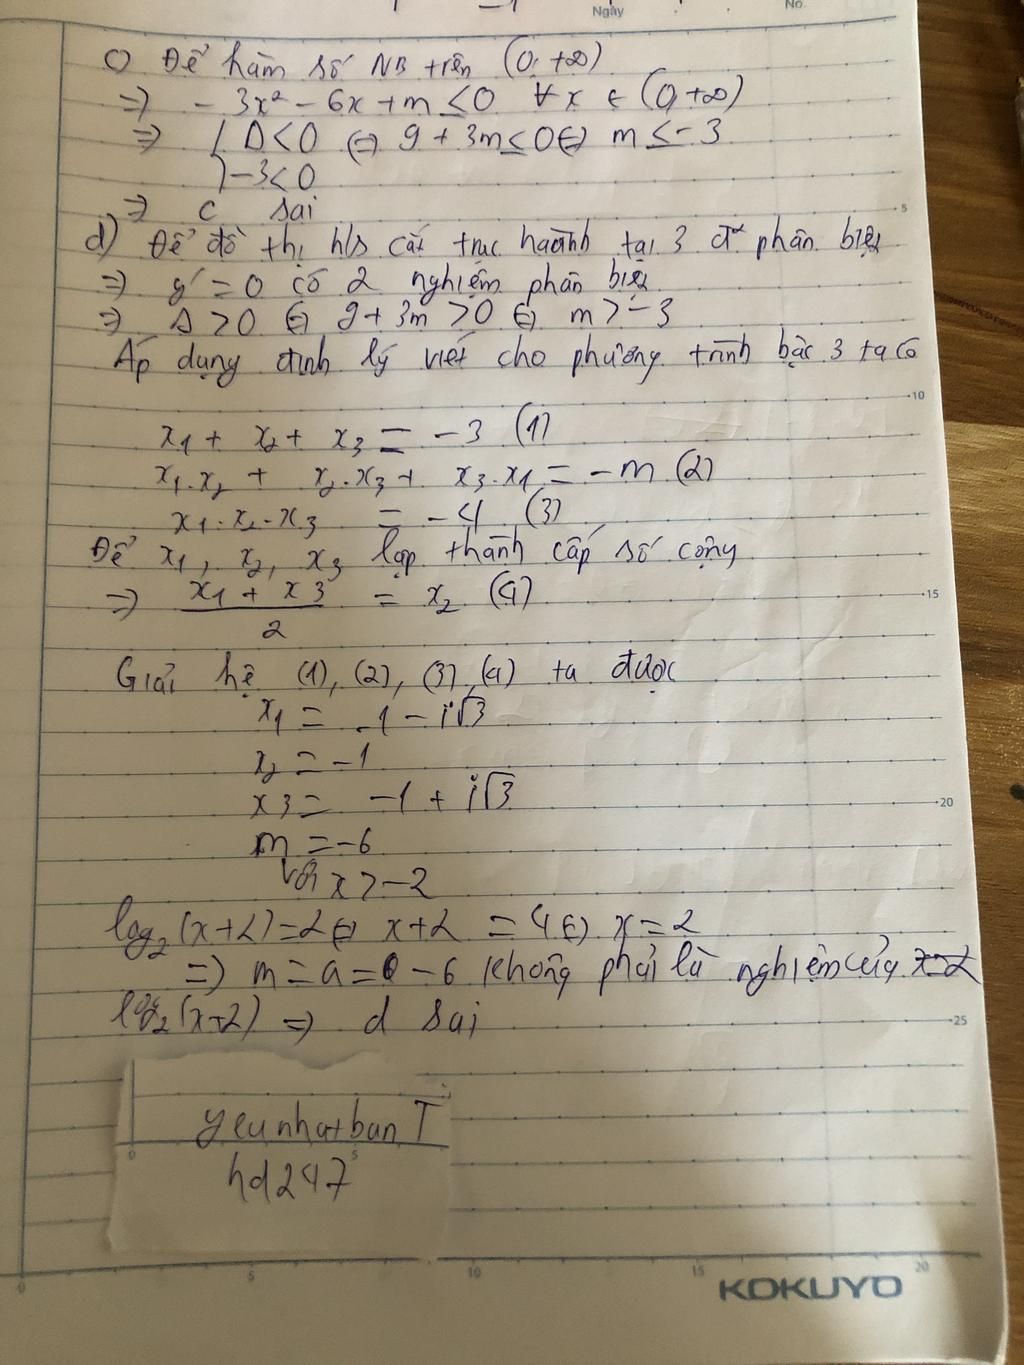 Ngày
No.
c) Để hàm số NB trên (0, +∞)
=> - 3x² - 6x + m ≤ 0 ∀ x ∈ (0, +∞)
=> { Δ < 0 ⇔ 9 + 3m ≤ 0 ⇔ m ≤ - 3
-3 < 0
=> c sai
5
d) Để đồ thị h/s cắt trục hoành tại 3 đ² phân biệt
=> y' = 0 có 2 nghiệm phân biệt
=> Δ > 0 ⇔ 9 + 3m > 0 ⇔ m > -3
Áp dụng định lý viét cho phương trình bậc 3 ta có
10
x1 + x2 + x3 = - 3 (1)
x1.x2 + x2.x3 + x3.x1 = - m (2)
x1.x2.x3 = - 4 (3)
Để x1, x2, x3 lập thành cấp số cộng
=> x1 + x3 / 2 = x2 (4)
15
Giải hệ (1), (2), (3), (4) ta được
x1 = -1 - i√3
x2 = -1
x3 = -1 + i√3
20
m = -6
Với x > -2
log2(x+2) = 2 ⇔ x+2 = 4 ⇔ x = 2
=> m = a = -6 không phải là nghiệm của
log2(x+2) => d sai
25
yeunhatban T
0 5
hd247
0 5 10 15 20
KOKUYO